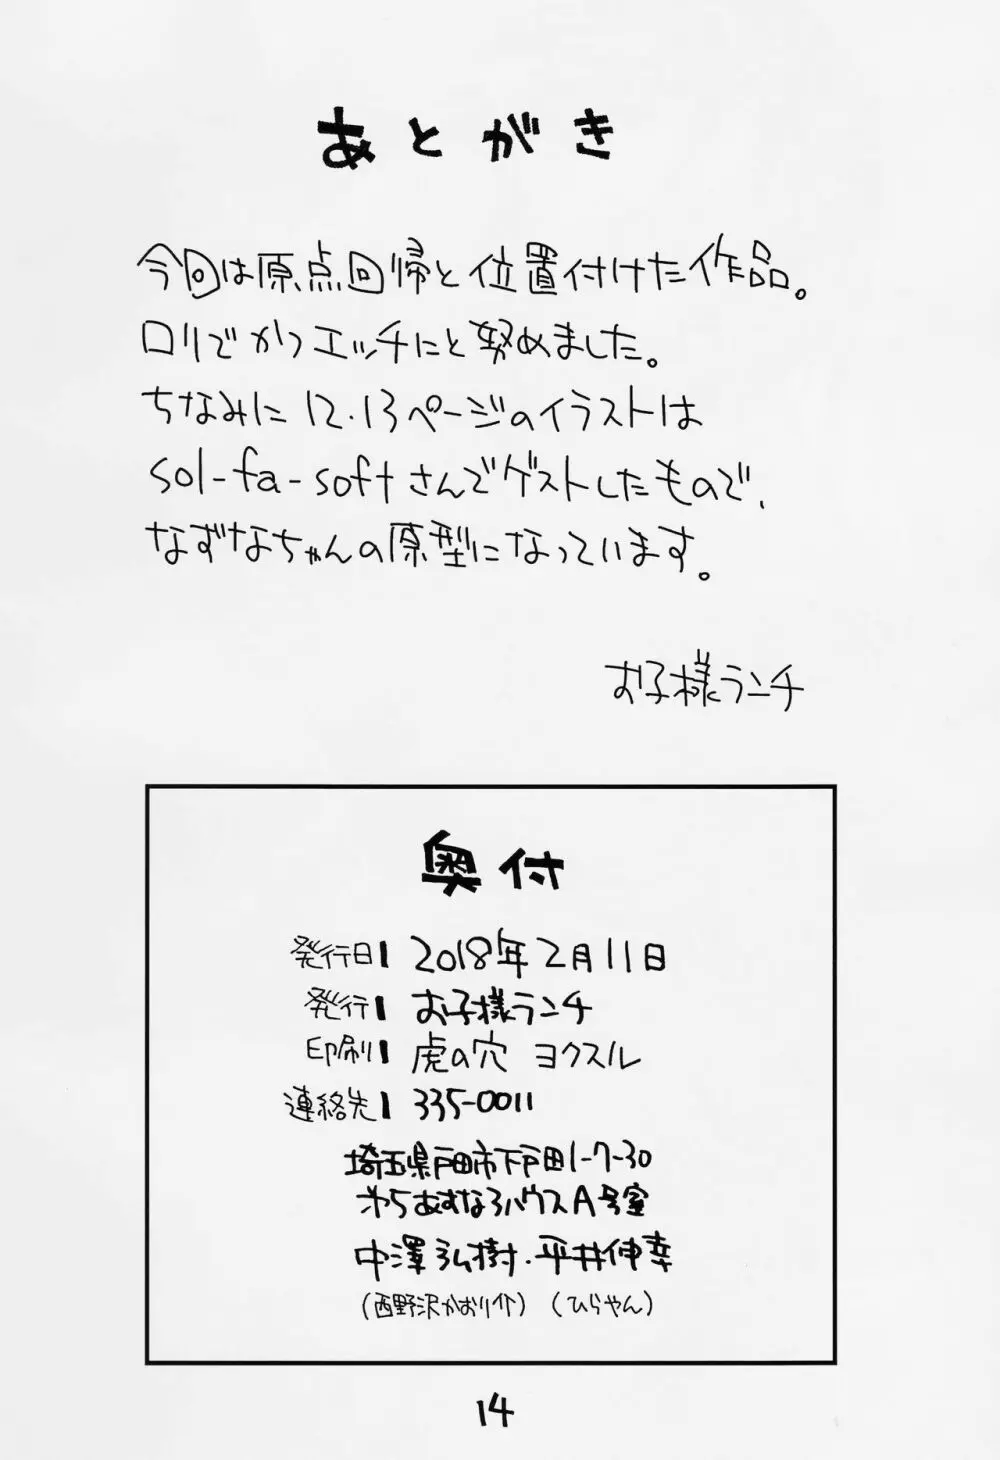 あとがき
今回は原点回帰と位置付けた作品。
ロリでかつエッチにと努めました。
ちなみに12.13ページのイラストは
sol-fa-softさんでゲストしたもので、
なずなちゃんの原型になっています。
お子様ランチ
奥付
発行日 2018年2月11日
発行 お子様ランチ
印刷 虎の穴 ヨクスル
連絡先 335-0011
埼玉県戸田市下戸田1-7-30
第5あすなろハウスA号室
中澤弘樹.平井伸幸
(西野沢かおり介) (ひらやん)
14